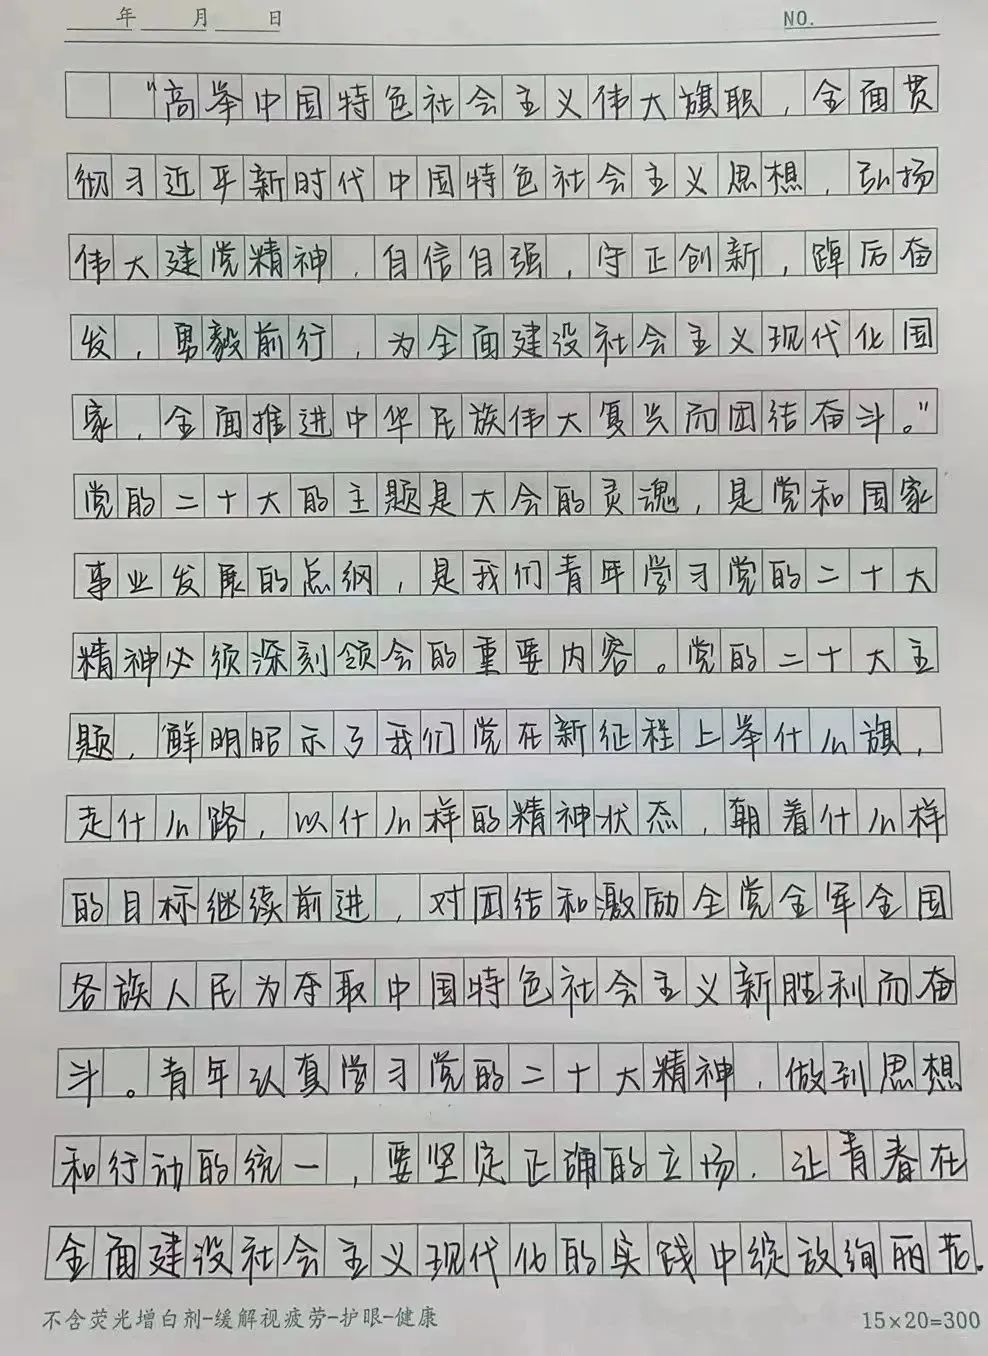 年 月 日 NO.
“高举中国特色社会主义伟大旗帜，全面贯
彻习近平新时代中国特色社会主义思想，弘扬
伟大建党精神，自信自强，守正创新，踔厉奋
发，勇毅前行，为全面建设社会主义现代化国
家，全面推进中华民族伟大复兴而团结奋斗。”
党的二十大的主题是大会的灵魂，是党和国家
事业发展的总纲，是我们青年学习党的二十大
精神必须深刻领会的重要内容。党的二十大主
题，鲜明昭示了我们党在新征程上举什么旗，
走什么路，以什么样的精神状态，朝着什么样
的目标继续前进，对团结和激励全党全军全国
各族人民为夺取中国特色社会主义新胜利而奋
斗。青年认真学习党的二十大精神，做到思想
和行动的统一，要坚定正确的立场，让青春在
全面建设社会主义现代化的实践中绽放绚丽花。
不含荧光增白剂-缓解视疲劳-护眼-健康 15×20=300